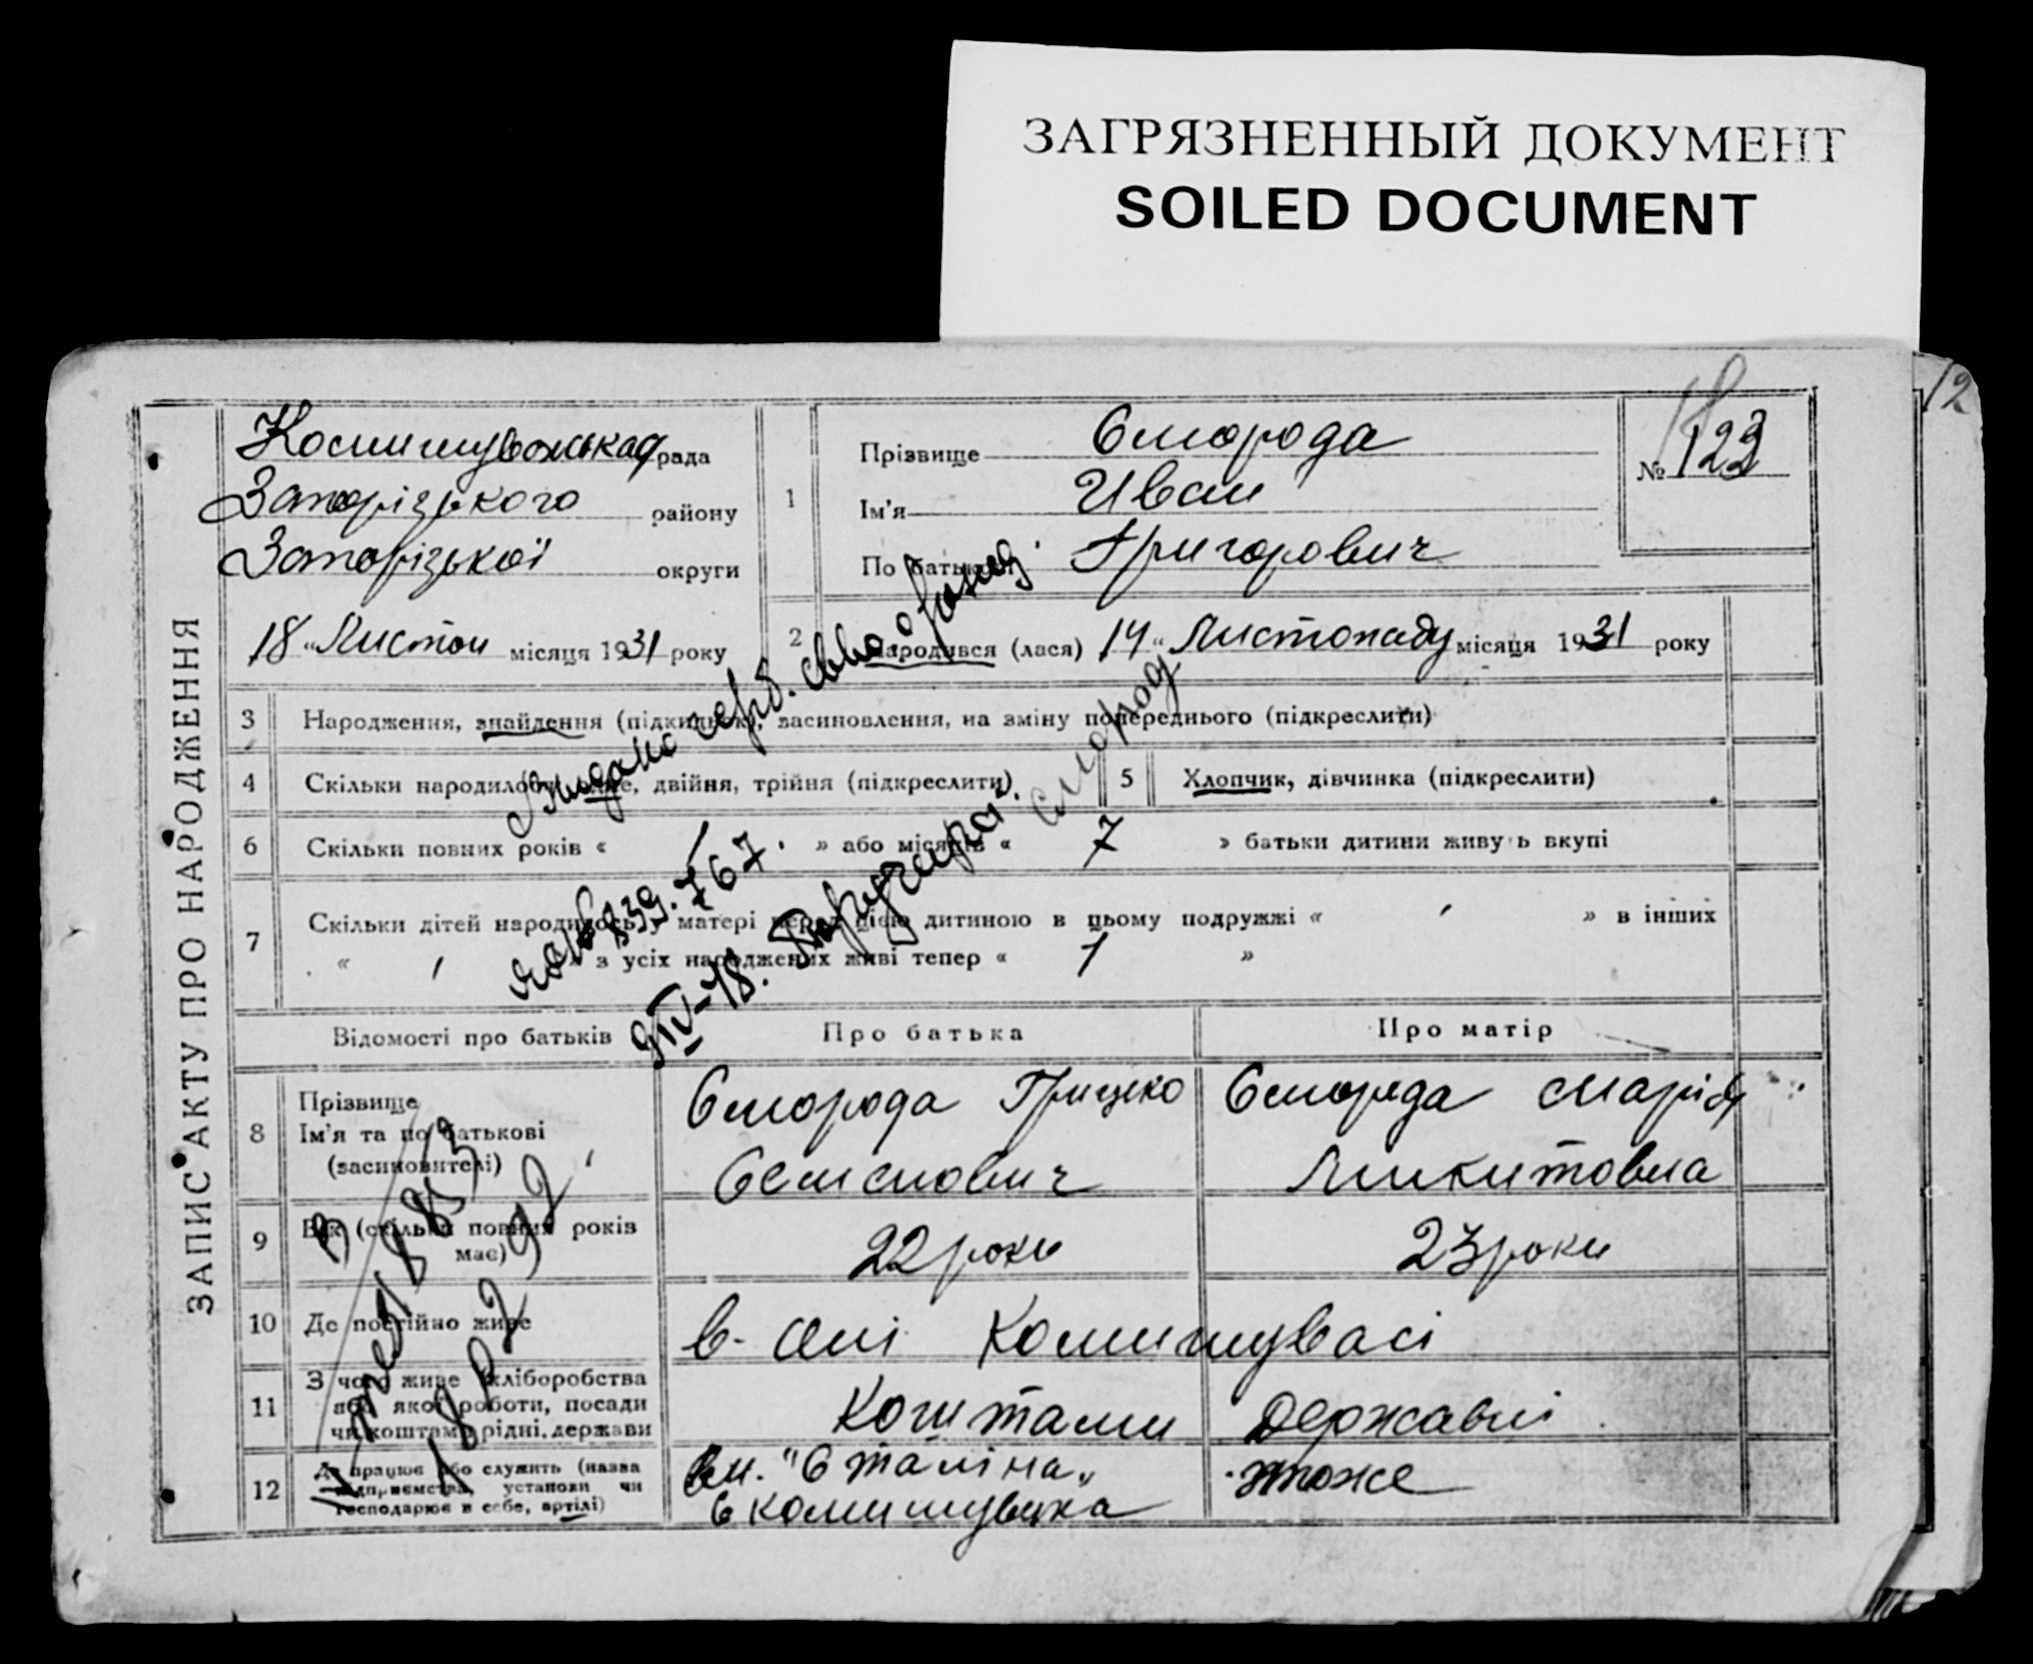 ЗАГРЯЗНЕННЫЙ ДОКУМЕНТ
SOILED DOCUMENT
12
ЗАПИС АКТУ ПРО НАРОДЖЕННЯ
рада
Запорізького району
Запорізької округи
18 " Листоп місяця 1931 року
1
Прізвище Сморода
Ім'я Иван
По батькові Григорович
№ 123
2 Народився (лася) 14 " Листопаду місяця 1931 року
3 Народження, знайдення (підкидьок), засиновлення, на зміну попереднього (підкреслити)
4 Скільки народилось: одне, двійня, трійня (підкреслити)
5 Хлопчик, дівчинка (підкреслити)
6 Скільки повних років « » або місяців « 7 » батьки дитини живуть вкупі
7 Скільки дітей народилось у матері перед цією дитиною в цьому подружжі « » в інших
« » з усіх народжених живі тепер « 1 »
Відомості про батьків
Про батька
Про матір
8 Прізвище
Ім'я та по батькові
(засиновителі)
Сморода Грицько
Семенович
Сморода Марія
Микитовна
9 Вік (скільки повних років
має)
22 роки
23 роки
10 Де постійно живе
в селі Комишувасі
11 З чого живе хліборобства
або якої роботи, посади
чи коштами рідні, держави
Коштами Державні
12 Де працює або служить (назва
підприємства, установи чи
господарює в себе, артілі)
"Сталіна"
тоже
767.
9 IV-78.